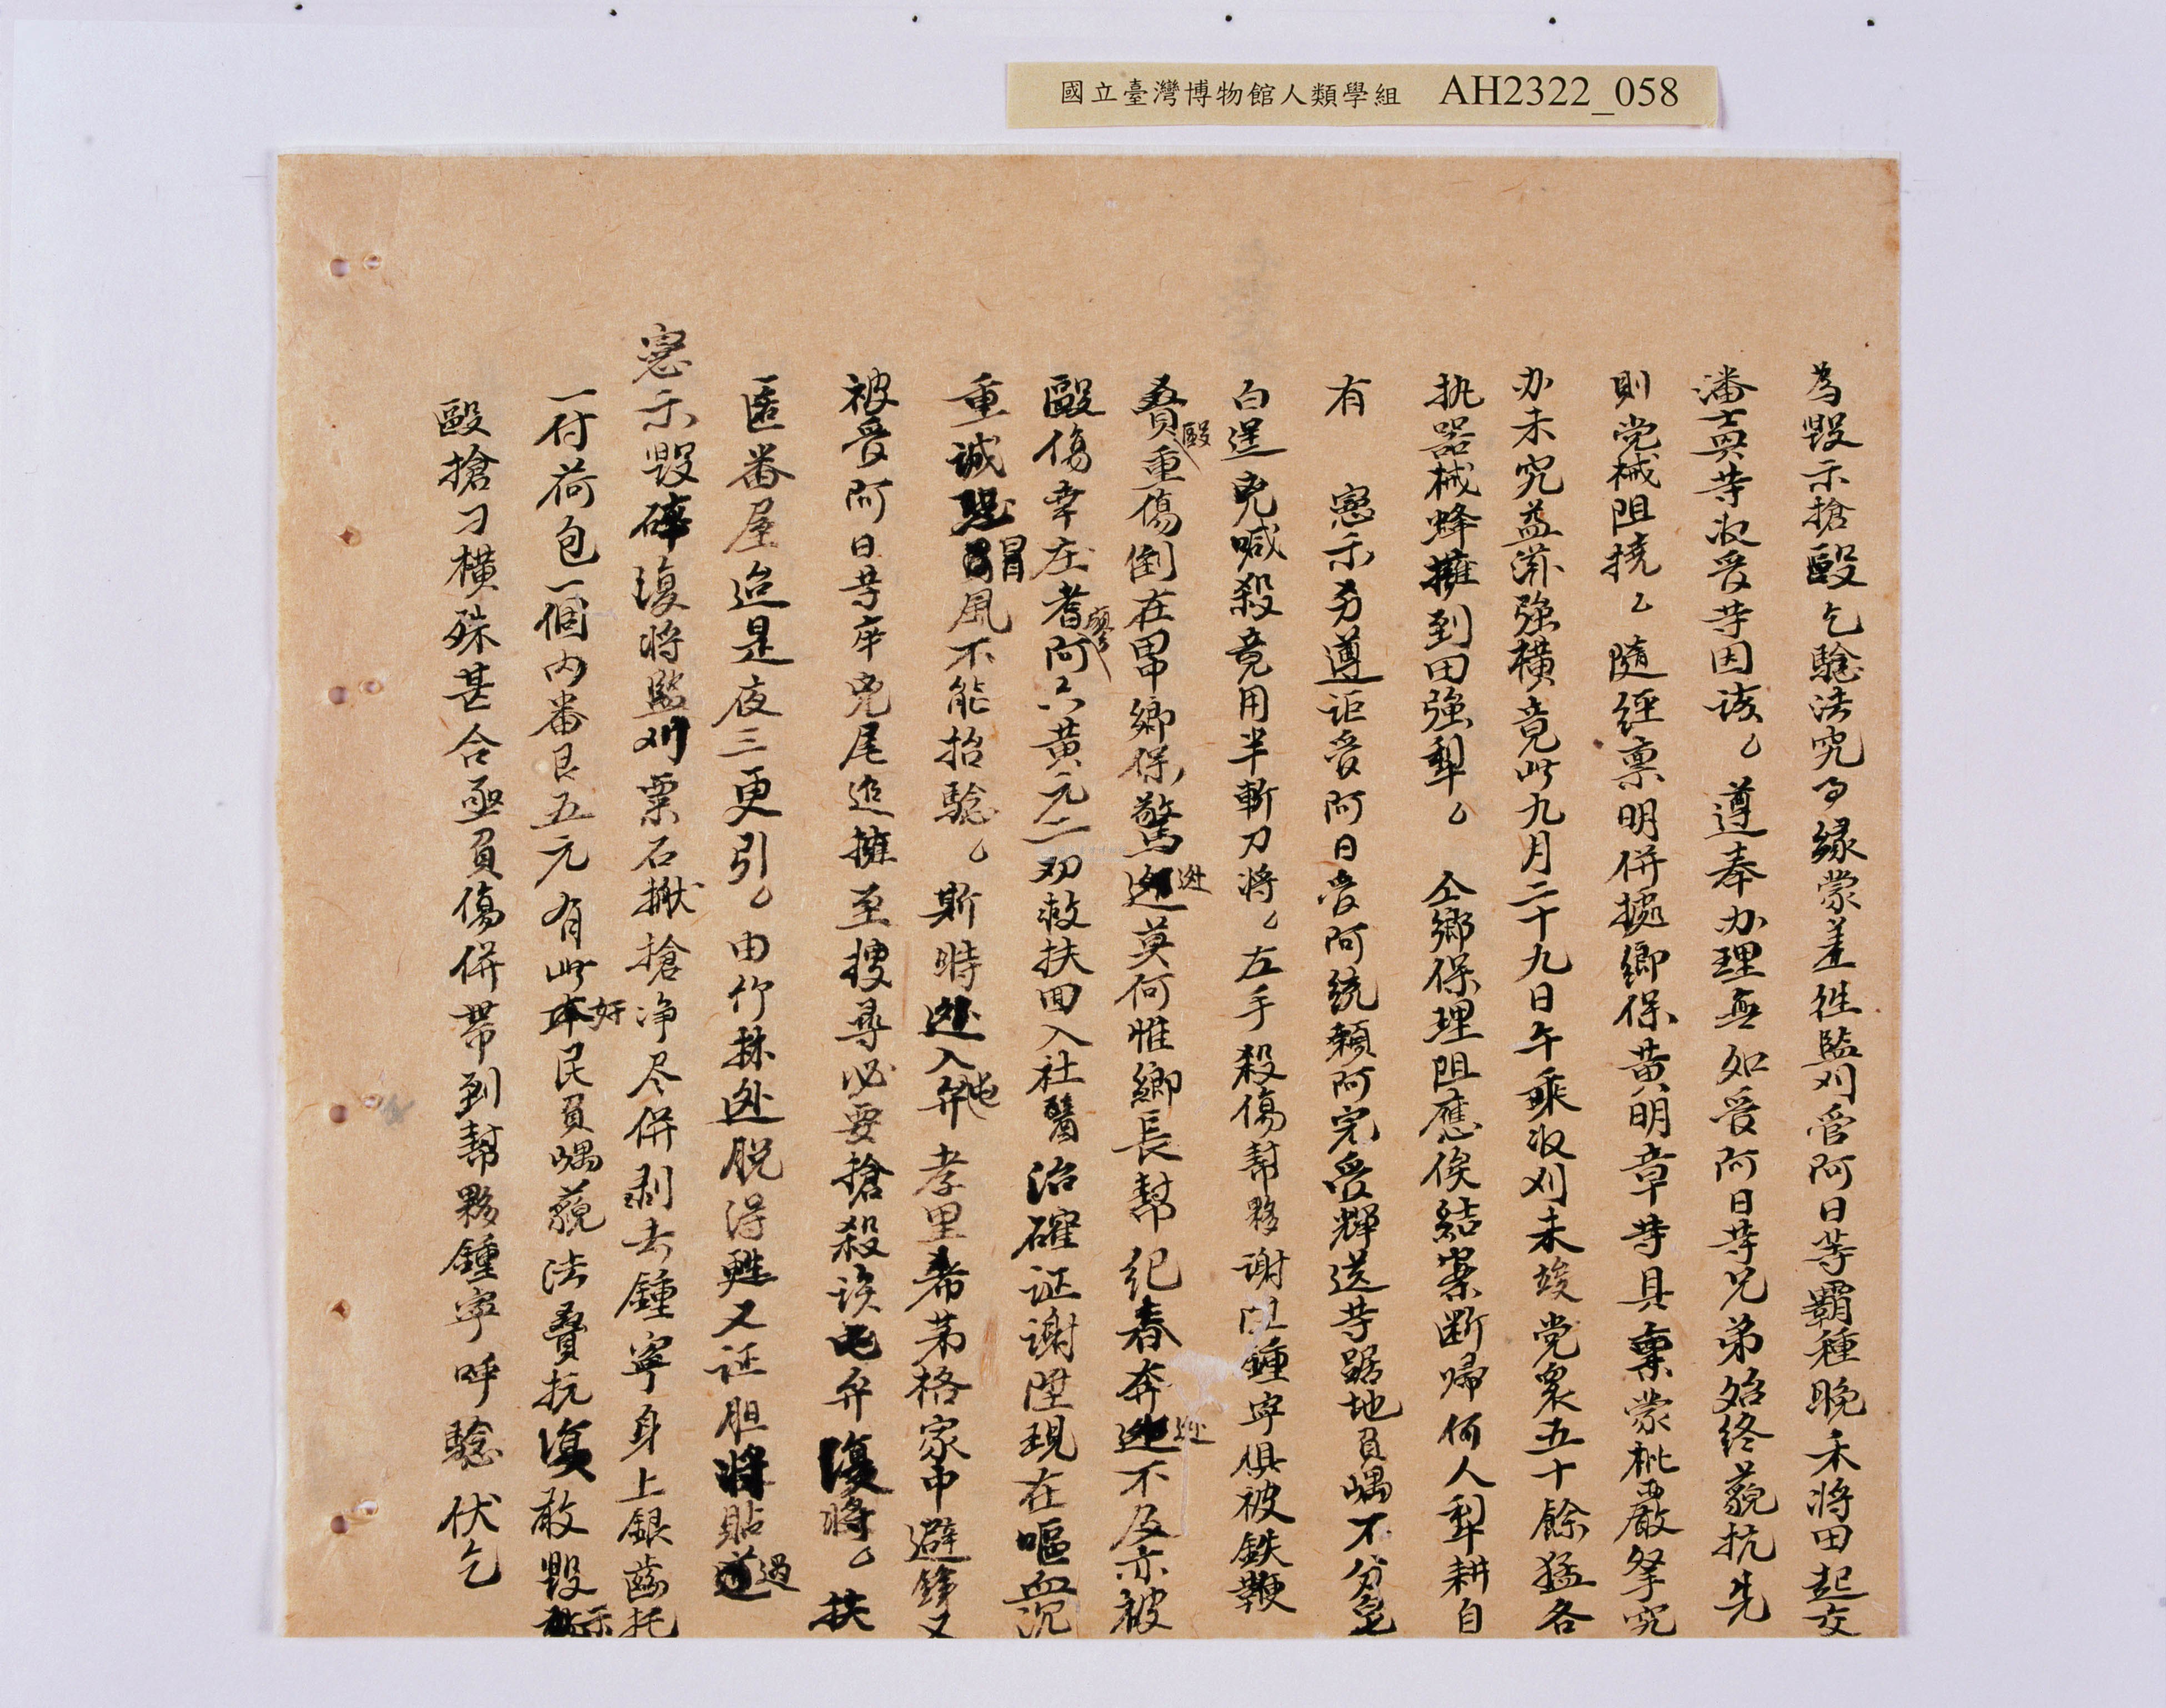 國立臺灣博物館人類學組 AH2322_058
為毀示搶毆乞驗法究事緣蒙差徃監刈管阿日等霸種晚禾將田起交
潘士興等收管等因該〻遵奉办理無如管阿日等兄弟始終藐抗先
則党械阻撓〻隨經稟明併據鄉保黃明章等具稟蒙批嚴拏究
办未究益漸強橫竟此九月二十九日午乘收刈未竣党衆五十餘猛各
执器械蜂擁到田強犁〻仝鄉保理阻應俟結案断歸何人犁耕自
有 憲示另遵詎管阿日管阿統賴阿完管輝送等踞地負嵎不分皂
白逞兇喊殺竟用半斬刀將〻左手殺傷幇夥謝陞鍾寧俱被鉄鞭
毆重傷倒在田中鄉保驚迯莫何惟鄉長幇紀春奔迯不及亦被
毆傷幸庄耆廖阿六黃元二刃救扶回入社醫治確证謝陞現在嘔血沉
重誠恐冒風不能抬驗〻斯時迯入屯弁孝里希茅格家中避鋒又
被管阿日等率兇尾追擁至搜尋必要搶殺该屯弁復將〻扶
匿番屋迨是夜三更引〻由竹林迯脱得甦又证胆將貼過
憲示毀碎復將監刈粟石搬搶净尽併剥去鍾寧身上銀齒托
一付荷包一個內番艮五元有此奸民負嵎藐法賛抗復敢毀示
毆搶刁橫殊甚合亟負傷併帯到幇夥鍾寧呼驗伏乞